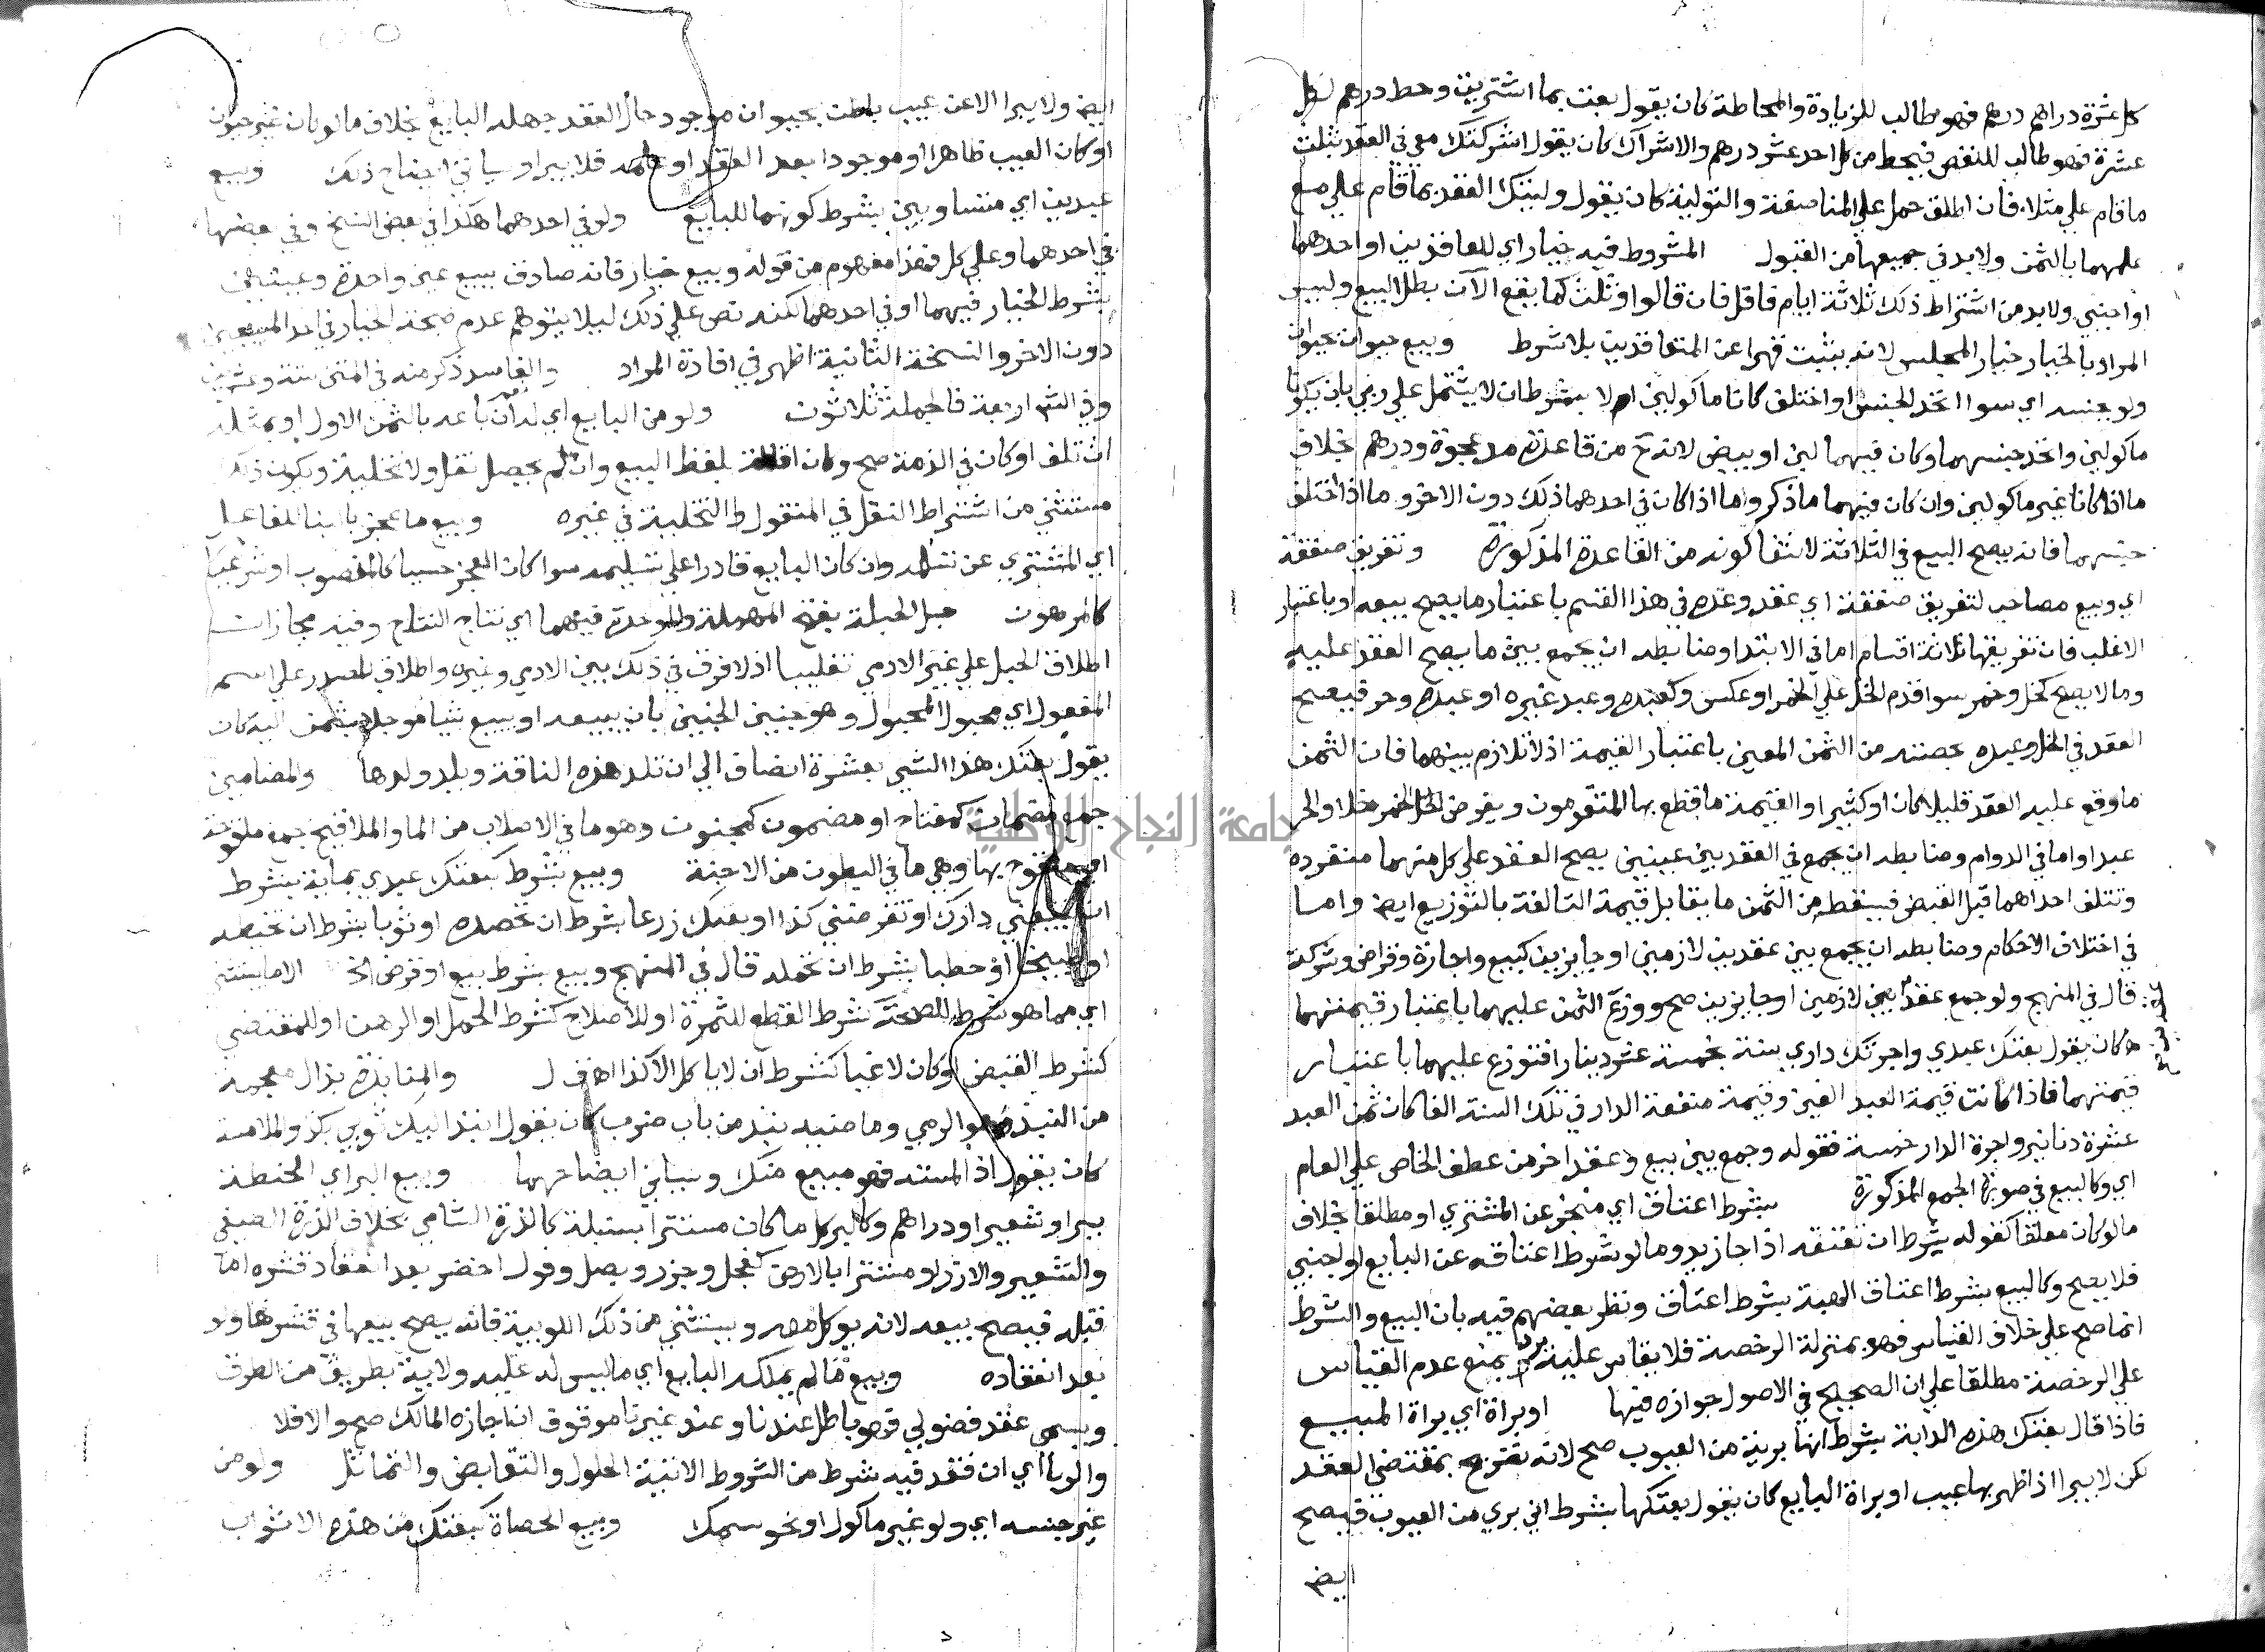 كل عشرة دراهم درهم فهو مطالب للزيادة والمحاطة كان يقول بعت بما اشتريت وحط درهم لكل
عشرة فهو طالب للنقص فيحط من كل احد عشر درهم والاشراك كان يقول اشركتك معي في العقد بثلث
ما قام علي مثلا فان اطلق حمل علي المناصفة والتولية كان يقول وليتك العقد بما قام علي مع
علمهما بالثمن ولا بد في جميعها من القبول المشروط فيه خيار اي للعاقدين او احدهما
او اجنبي ولا بد من اشتراط ذلك ثلاثة ايام فاقل فان قالوا وثلث كما يقع الآن بطل البيع وليس
المراد بالخيار خيار المجلس لانه يثبت قهرا عن المتعاقدين بلا شرط وبيع حيوان بحيوان
ولو بجنسه اي سوا اتحد الجنس او اختلف كانا ماكولين ام لا بشرط ان لا يشتمل علي ربي بان يكونا
ماكولين واتحد جنسهما وكان فيهما لبن او بيض لانه ح من قاعدة مد عجوة ودرهم بخلاف
ما اذا كانا غير ماكولين وان كان فيهما ما ذكر وما اذا كان في احدهما ذلك دون الاخر وما اذا اختلف
جنسهما فانه يصح البيع في الثلاثة لانتفا كونه من القاعدة المذكورة وتفريق صفقة
اي وبيع مصاحب لتفريق صفقة اي عقد وعده في هذا القسم باعتبار ما يصح بيعه او باعتبار
الاغلب فان تفريقها ثلاثة اقسام اما في الابتدا وضابطه ان يجمع بين ما يصح العقد عليه
وما لا يصح كخل وخمر سوا قدم الخل علي الخمر او عكس وكعبده وعبد غيره او عبده وحر فيصح
العقد في الخل وعبده بحصته من الثمن المعين باعتبار القيمة اذ لا تلازم بينهما فان الثمن
ما وقع عليه العقد قليلا كان او كثيرا والقيمة ما قطع بها المتقومون ويفرض الخمر خلا والحر
عبدا واما في الدوام وضابطه ان يجمع في العقد بين عينين يصح العقد علي كل منهما منفرده
وتتلف احداهما قبل القبض فيسقط من الثمن ما يقابل قيمة التالفة بالتوزيع ايض واما
في اختلاف الاحكام وضابطه ان يجمع بين عقدين لازمين او جايزين كبيع واجارة وقراض وشركة
قال في المنهج ولو جمع عقد بين لازمين او جايزين صح ووزع الثمن عليهما باعتبار قيمتهما
كان يقول بعتك عبدي واجرتك داري سنة بخمسة عشر دينارا فتوزع عليهما باعتبار
قيمتهما فاذا كانت قيمة العبد الفين وقيمة منفعة الدار في تلك السنة الفا كان ثمن العبد
عشرة دنانير واجرة الدار خمسة فقوله وجمع بين بيع وعقد اخر من عطف الخاص علي العام
اي وكالبيع في صورة الجمع المذكورة بشرط اعتاق اي منجز عن المشتري او مطلقا بخلاف
ما لو كان معلقا كقوله بشرط ان تعتقه اذا جا زيد وما لو شرط اعتاقه عن البايع او اجنبي
فلا يصح وكالبيع بشرط اعتاق الهبة بشرط اعتاق ونظر بعضهم فيه بان البيع والشرط
انما صح علي خلاف القياس فهو بمنزلة الرخصة فلا يقاس عليه يمنع عدم القياس
علي الرخصة مطلقا علي ان الصحيح في الاصول جوازه فيها او براة اي براة المبيع
فاذا قال بعتك هذه الدابة بشرط انها برية من العيوب صح لانه تصريح بمقتضي العقد
لكن لا يبرا اذا ظهر بها عيب او براة البايع كان يقول بعتكها بشرط اني بري من العيوب فيصح
ايض
ايض ولا يبرا الا عن عيب باطن بحيوان موجود حال العقد جهله البايع بخلاف ما لو كان غير حيوان
او كان العيب ظاهرا او موجودا بعد العقد او علمه فلا يبرا وسياتي ايضاح ذلك وبيع
عبدين اي متساويين بشرط كونهما للبايع ولو في احدهما هكذا في بعض النسخ وفي بعضها
في احدهما وعلي كل فهذا مفهوم من قوله وبيع خيار فانه صادق ببيع عين واحدة وعينين
بشرط الخيار فيهما او في احدهما لكنه نص علي ذلك ليلا يتوهم عدم صحة الخيار في احد المبيعين
دون الاخر والنسخة الثانية اظهر في افادة المراد والفاسد ذكر منه في المتن ستة وعشرين
وفي الشرح اربعة فالجملة ثلاثون ولو من البايع اي له ان باعه بالثمن الاول او بمثله
ان تلف او كان في الذمة صح وكان اقالة بلفظ البيع وان لم يحصل نقل ولا تخلية ويكون ذلك
مستثني من اشتراط النقل في المنقول والتخلية في غيره وبيع ما عجز بالبنا للفاعل
اي المشتري عن تسلمه وان كان البايع قادرا علي تسليمه سوا كان العجز حسيا كالمغصوب او شرعيا
كالمرهون حبل الحبلة بفتح المهملة والموحدة فيهما اي نتاج النتاج وفيه مجازات
اطلاق الحبل علي غير الادمي تغليبا اذ لا فرق في ذلك بين الادمي وغيره واطلاق المصدر علي اسم
المفعول اي محبول المحبول وهو جنين الجنين بان يبيعه او يبيع شيا موجلا بثمن اليه كان
يقول بعتك هذا الشي بعشرة ايضاف الي ان تلد هذه الناقة ويلد ولدها والمضامين
جمع مضمان كمفتاح او مضمون كمجنون وهو ما في الاصلاب من الما والملاقيح جمع ملقوحة
اي ملقوح بها وهي ما في البطون من الاجنة وبيع بشرط كبعتك عبدي بماية بشرط
ان تبيعني دارك او تقرضني كذا او بعتك زرعا بشرط ان تحصده او ثوبا بشرط ان تخيطه
او بطيخا او حطبا بشرط ان تحمله قال في المنهج وبيع بشرط بيع او قرض الخ الا ما يستثني
اي مما هو شرط للصحة كشرط القطع للثمرة او للاصلاح كشرط الحمل او الرهن او للمقتضي
كشرط القبض او كان لاغيا كشرط ان لا ياكل الا كذا والمنابذة بذال معجمة
من النبذ وهو الرمي وماضيه نبذ من باب ضرب كان يقول انبذ اليك ثوبي بكذا والملامسة
كان يقول اذا لمسته فهو مبيع منك وسياتي ايضاحهما وبيع البر اي الحنطة
ببر او شعير او دراهم وكالبر كل ما كان مستترا بسنبلة كالذرة الشامي بخلاف الذرة الصيفي
والشعير والارز او مستترا بالارض كفجل وجزر وبصل وفول اخضر بعد انعقاد قشره اما
قبله فيصح بيعه لانه يوكل معه ويستثني من ذلك اللوبية فانه يصح بيعها في قشرها ولو
بعد انعقاده وبيع ما لم يملكه البايع اي ما ليس له عليه ولاية بطريق من الطرق
ويسمي عقد فضولي فهو باطل عندنا وعند غيرنا موقوف ان اجازه المالك صح والا فلا
والربا اي ان فقد فيه شرط من الشروط الاتية الحلول والتقابض والتماثل ولو من
غير جنسه اي ولو غير ماكول او نحو سمك وبيع الحصاة كبعتك من هذه الاثواب
جامعة النجاح الوطنية